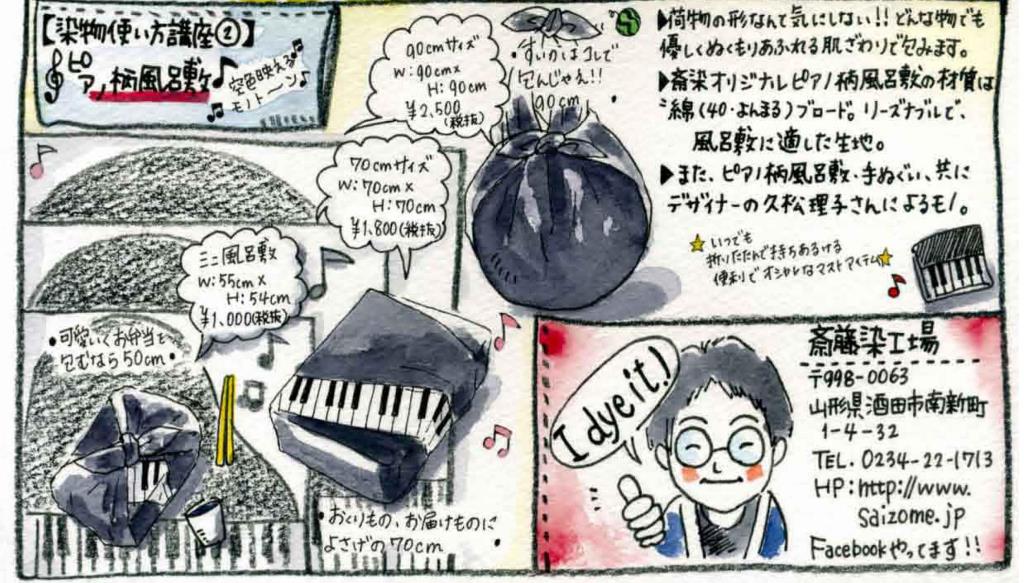 【染物使い方講座②】
ピアノ柄風呂敷
空色映える
モノトーン
90cmサイズ
W:90cm×
H:90cm
¥2,500
(税抜)
・すいかはコレで
包んじゃえ!!
90cm・
▶荷物の形なんて気にしない!!どんな物でも
優しくぬくもりあふれる肌ざわりで包みます。
▶斎染オリジナルピアノ柄風呂敷の材質は
綿(40・よんまる)ブロード。リーズナブルで、
風呂敷に適した生地。
▶また、ピアノ柄風呂敷・手ぬぐい、共に
デザイナーの久松理子さんによるモノ。
いつでも
折りたたんで持ちあるける
便利でオシャレなマストアイテム
70cmサイズ
W:70cm×
H:70cm
¥1,800(税抜)
ミニ風呂敷
W:55cm×
H:54cm
¥1,000(税抜)
・可愛いくお弁当を
包むなら50cm・
・おくりもの、お届けものに
よさげの70cm・
I dye it!
斎藤染工場
〒998-0063
山形県酒田市南新町
1-4-32
TEL. 0234-22-1713
HP:http://www.
saizome.jp
Facebookやってます!!